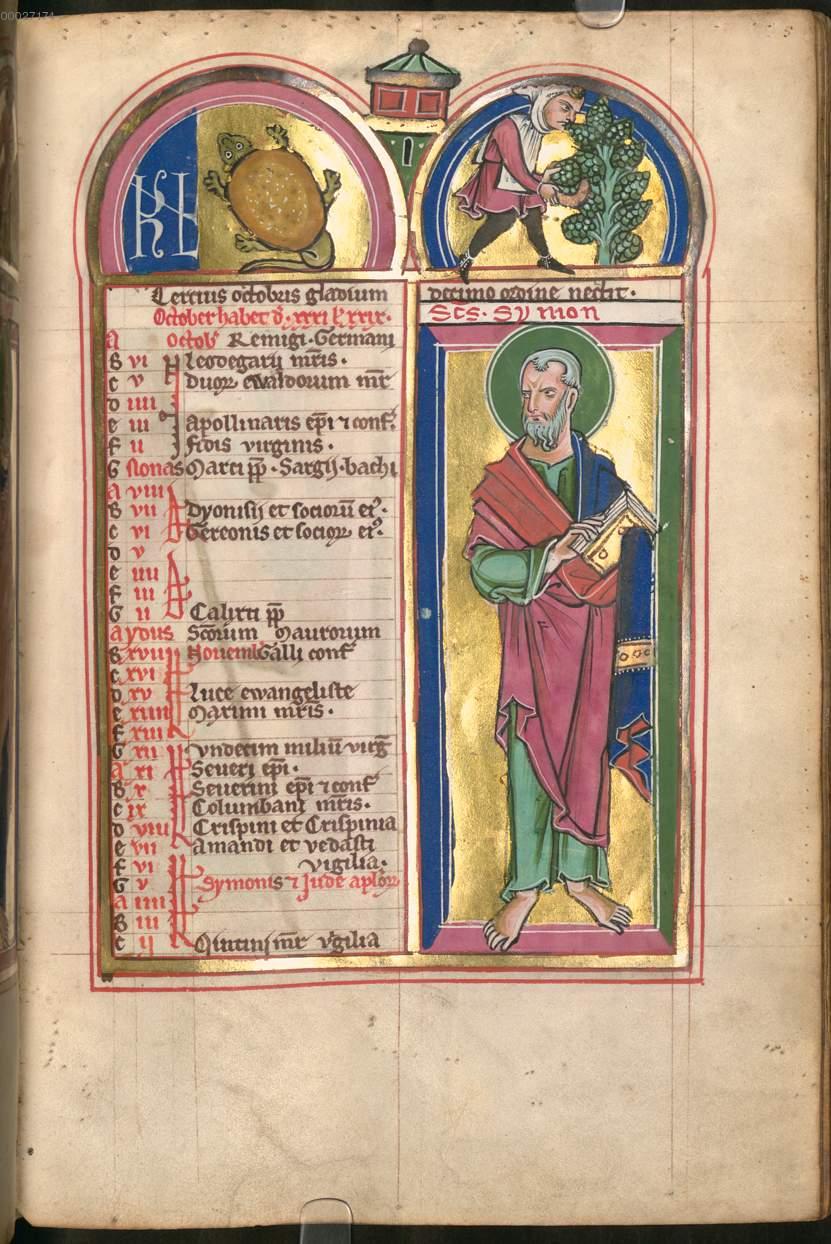 00027174
KL
Tercius octobris gladium
decimo ordine nectit.
October habet d. xxxi l. xxix.
Scs. Symon
A Octob Remigi. Germani
B vi Leodegarii mris.
c v Duor ewaldorum mr
d iiii
e iii Apollinaris epi ⁊ conf.
f ii Fidis virginis.
G nonas Marci pp. Sargii. bachi
A viii
B vii Dyonisii et sociorū ei9.
c vi Gereonis et socior ei9.
d v
e iiii
f iii
G ii Calixti pp
A ydus Scorum Maurorum
B xvii Nouemb Galli conf
c xvi
d xv Luce ewangeliste
e xiiii Maximi mris.
f xiii
G xii Vndecim miliū virg
A xi Seueri epi.
B x Seuerini epi ⁊ conf
c ix Columbani mris.
d viii Crispini et Crispinia
e vii Amandi et vedasti
f vi vigilia.
G v Symonis ⁊ Jude aplor
A iiii
B iii
c ii Quintini mr vigilia